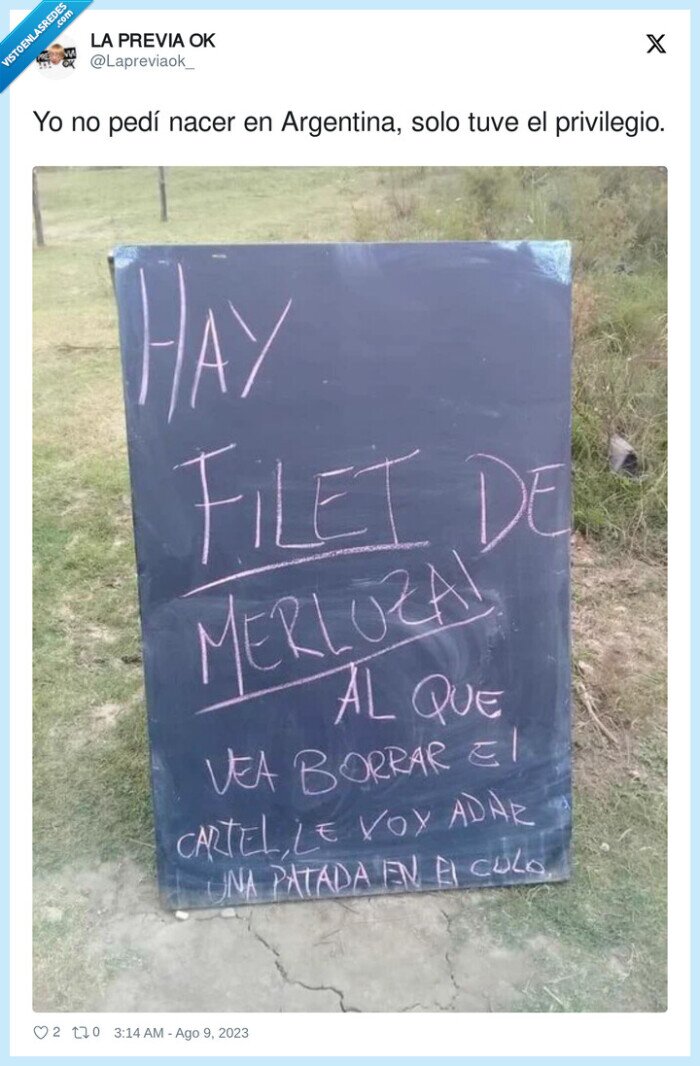 VISTOENLASREDES
.com
LA PREVIA OK
@Lapreviaok_
X
Yo no pedí nacer en Argentina, solo tuve el privilegio.
HAY
FILET DE
MERLUZA!
AL QUE
VEA BORRAR El
CARTEL, LE VOY ADAR
UNA PATADA EN El CULO.
2 0 3:14 AM - Ago 9, 2023